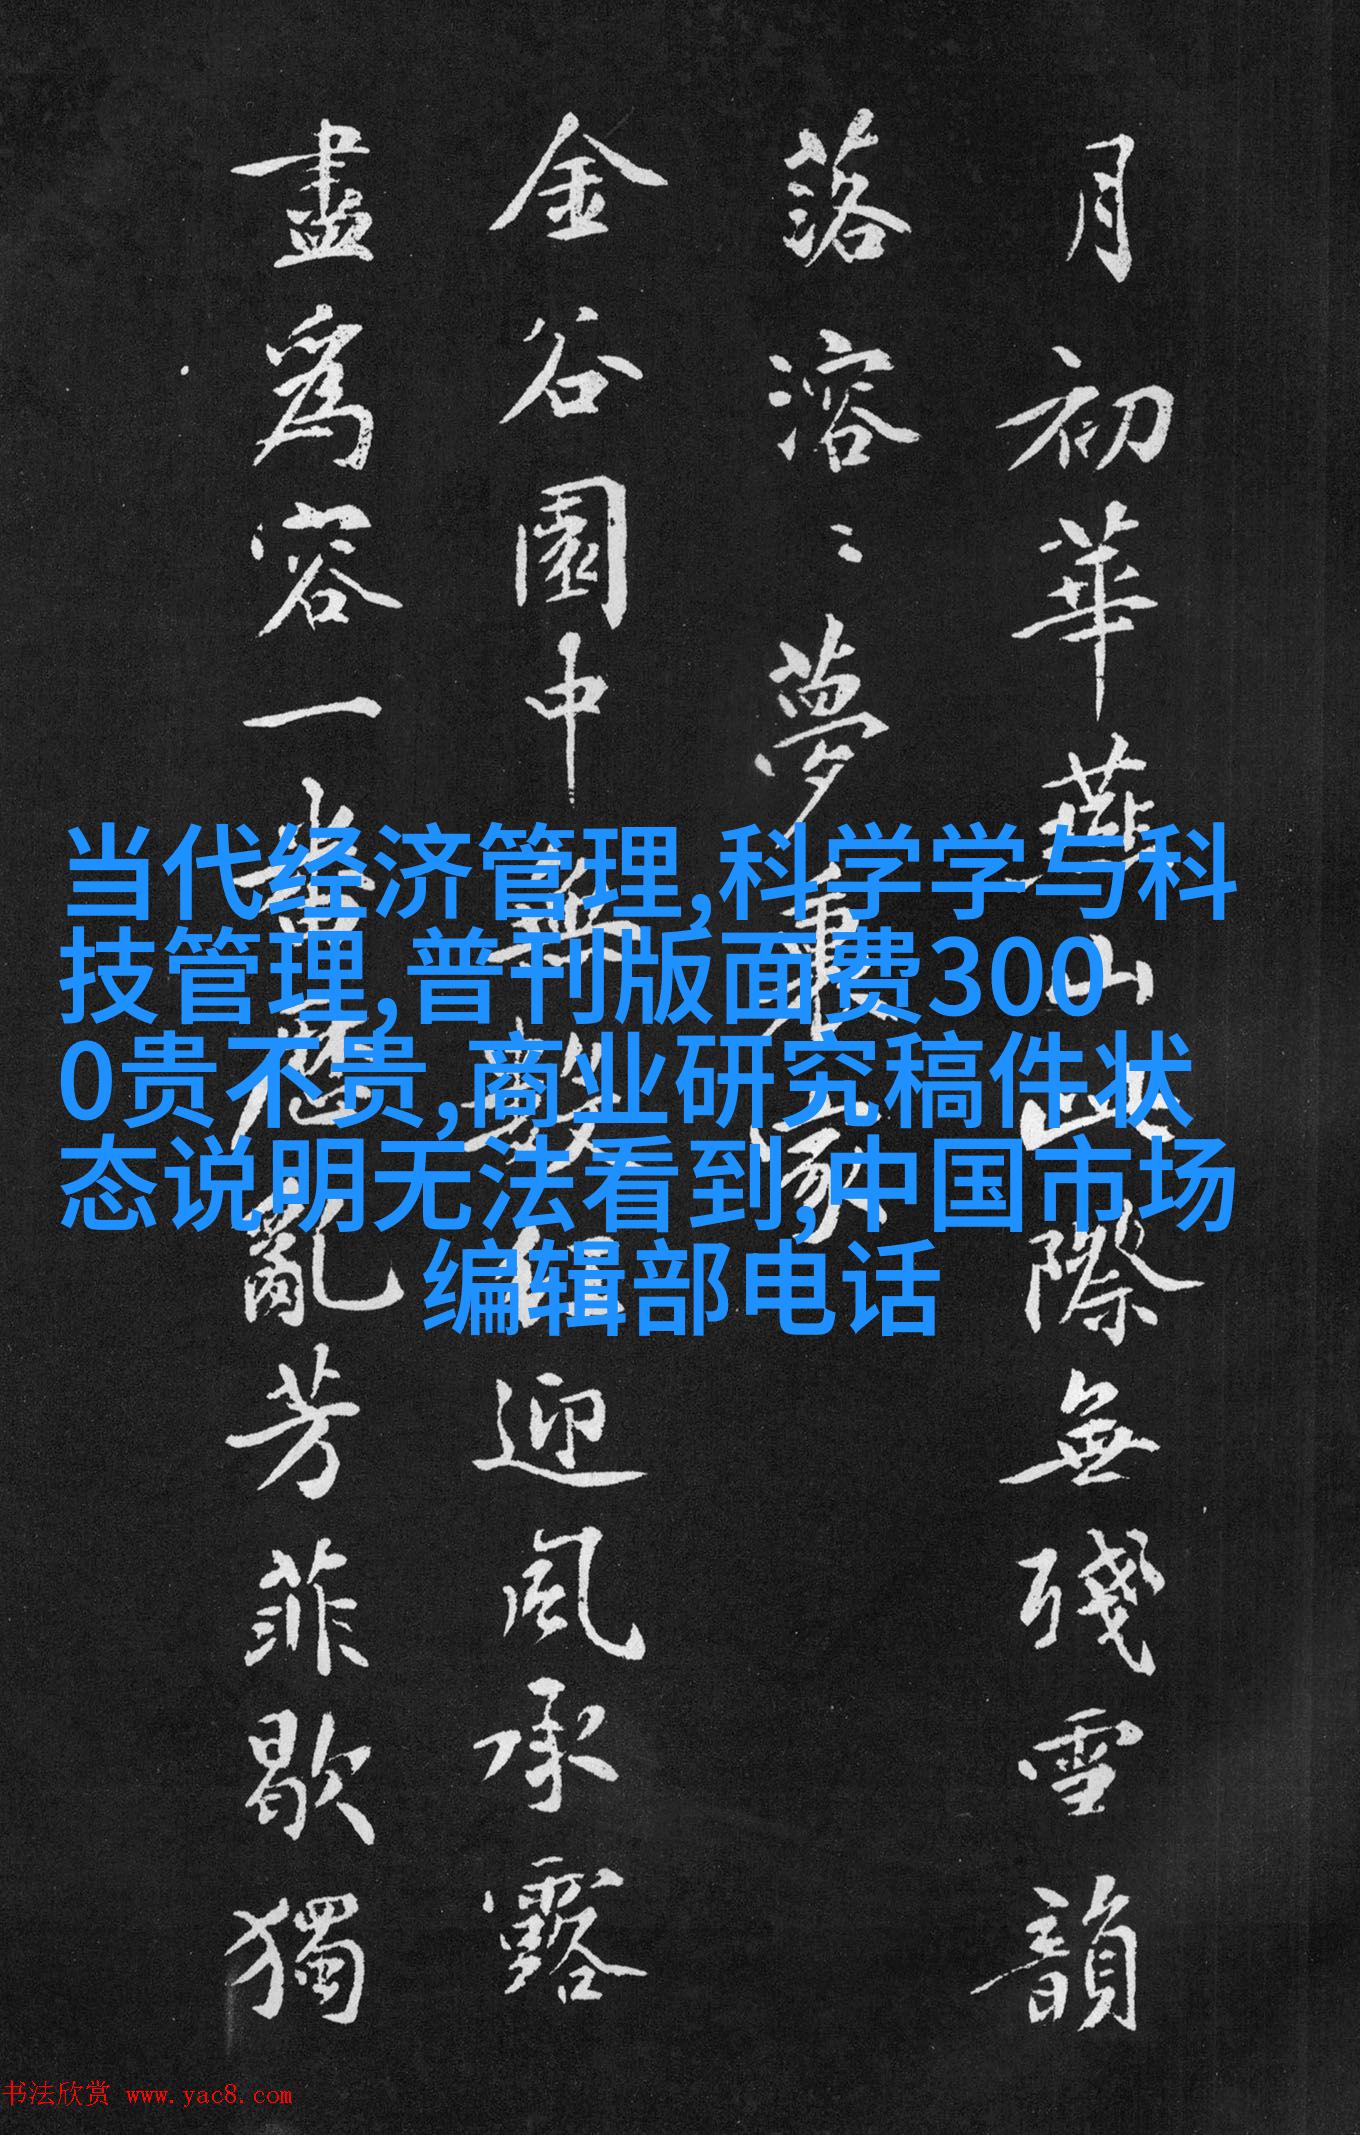 月初華燕山此際無殘雪韻
落溶〻夢裏家
金谷園中無數紅迎風承露
盡爲容一亂芳菲歇獨
当代经济管理,科学学与科
技管理,普刊版面费300
0贵不贵,商业研究稿件状
态说明无法看到,中国市场
编辑部电话
书法欣赏 www.yac8.com